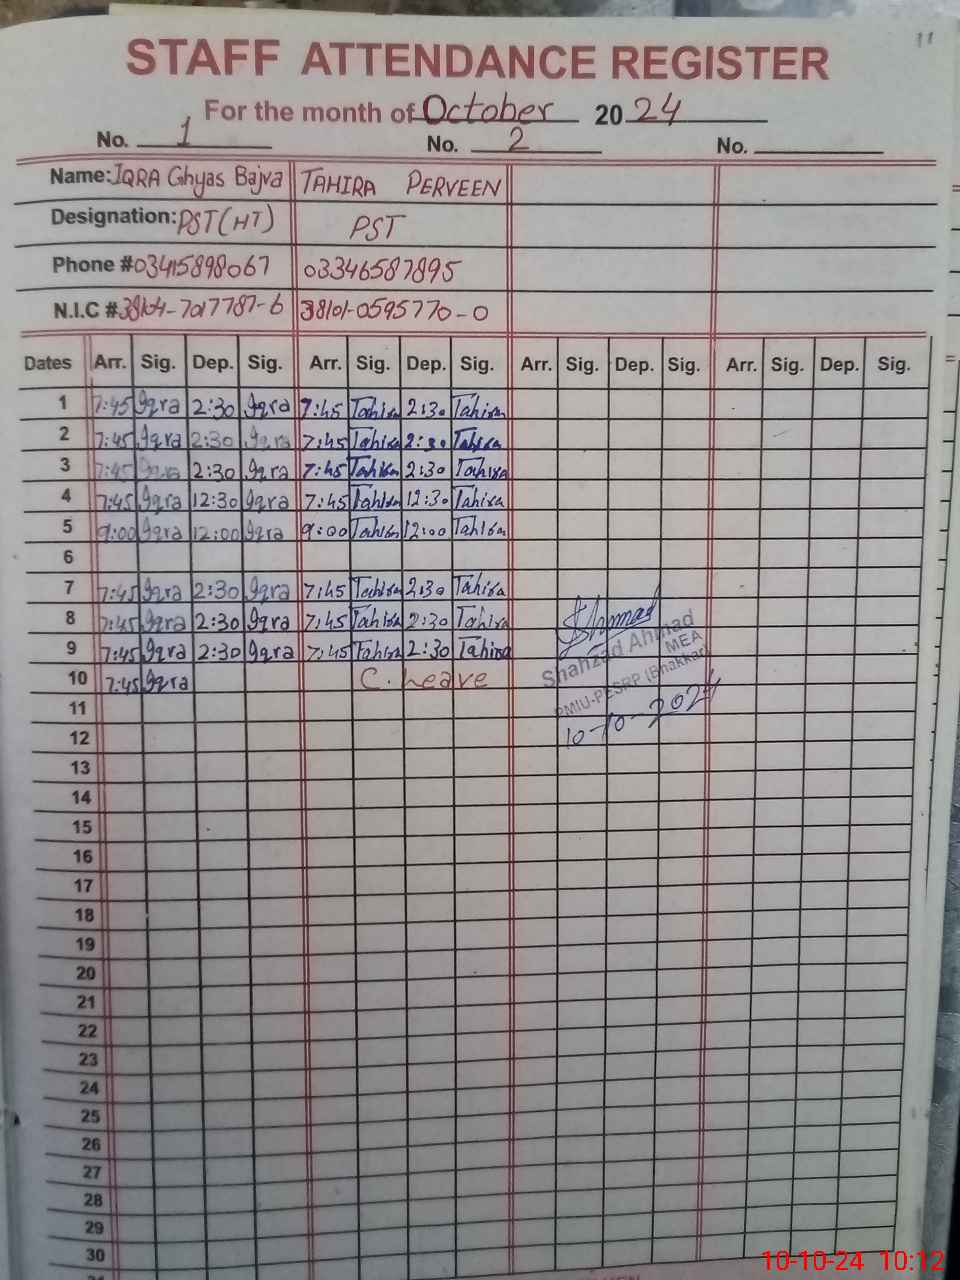 11
STAFF ATTENDANCE REGISTER
For the month of October 2024
No. 1 No. 2 No.
Name: IQRA Ghyas Bajva TAHIRA PERVEEN
Designation: PST(HT) PST
Phone # 03415898067 03346587895
N.I.C # 38104-7017787-6 38101-0595770-0
Dates Arr. Sig. Dep. Sig. Arr. Sig. Dep. Sig. Arr. Sig. Dep. Sig. Arr. Sig. Dep. Sig.
1 7:45 Iqra 2:30 Iqra 7:45 Tahira 2:30 Tahira
2 7:45 Iqra 2:30 Iqra 7:45 Tahira 2:30 Tahira
3 7:45 Iqra 2:30 Iqra 7:45 Tahira 2:30 Tahira
4 7:45 Iqra 12:30 Iqra 7:45 Tahira 12:30 Tahira
5 9:00 Iqra 12:00 Iqra 9:00 Tahira 12:00 Tahira
6
7 7:45 Iqra 2:30 Iqra 7:45 Tahira 2:30 Tahira
8 7:45 Iqra 2:30 Iqra 7:45 Tahira 2:30 Tahira
9 7:45 Iqra 2:30 Iqra 7:45 Tahira 2:30 Tahira
10 7:45 Iqra C. Leave
SAhmad
Shahzad Ahmad
MEA
PMIU-PESRP (Bhakkar)
10-10-2024
11
12
13
14
15
16
17
18
19
20
21
22
23
24
25
26
27
28
29
30
10-10-24 10:12